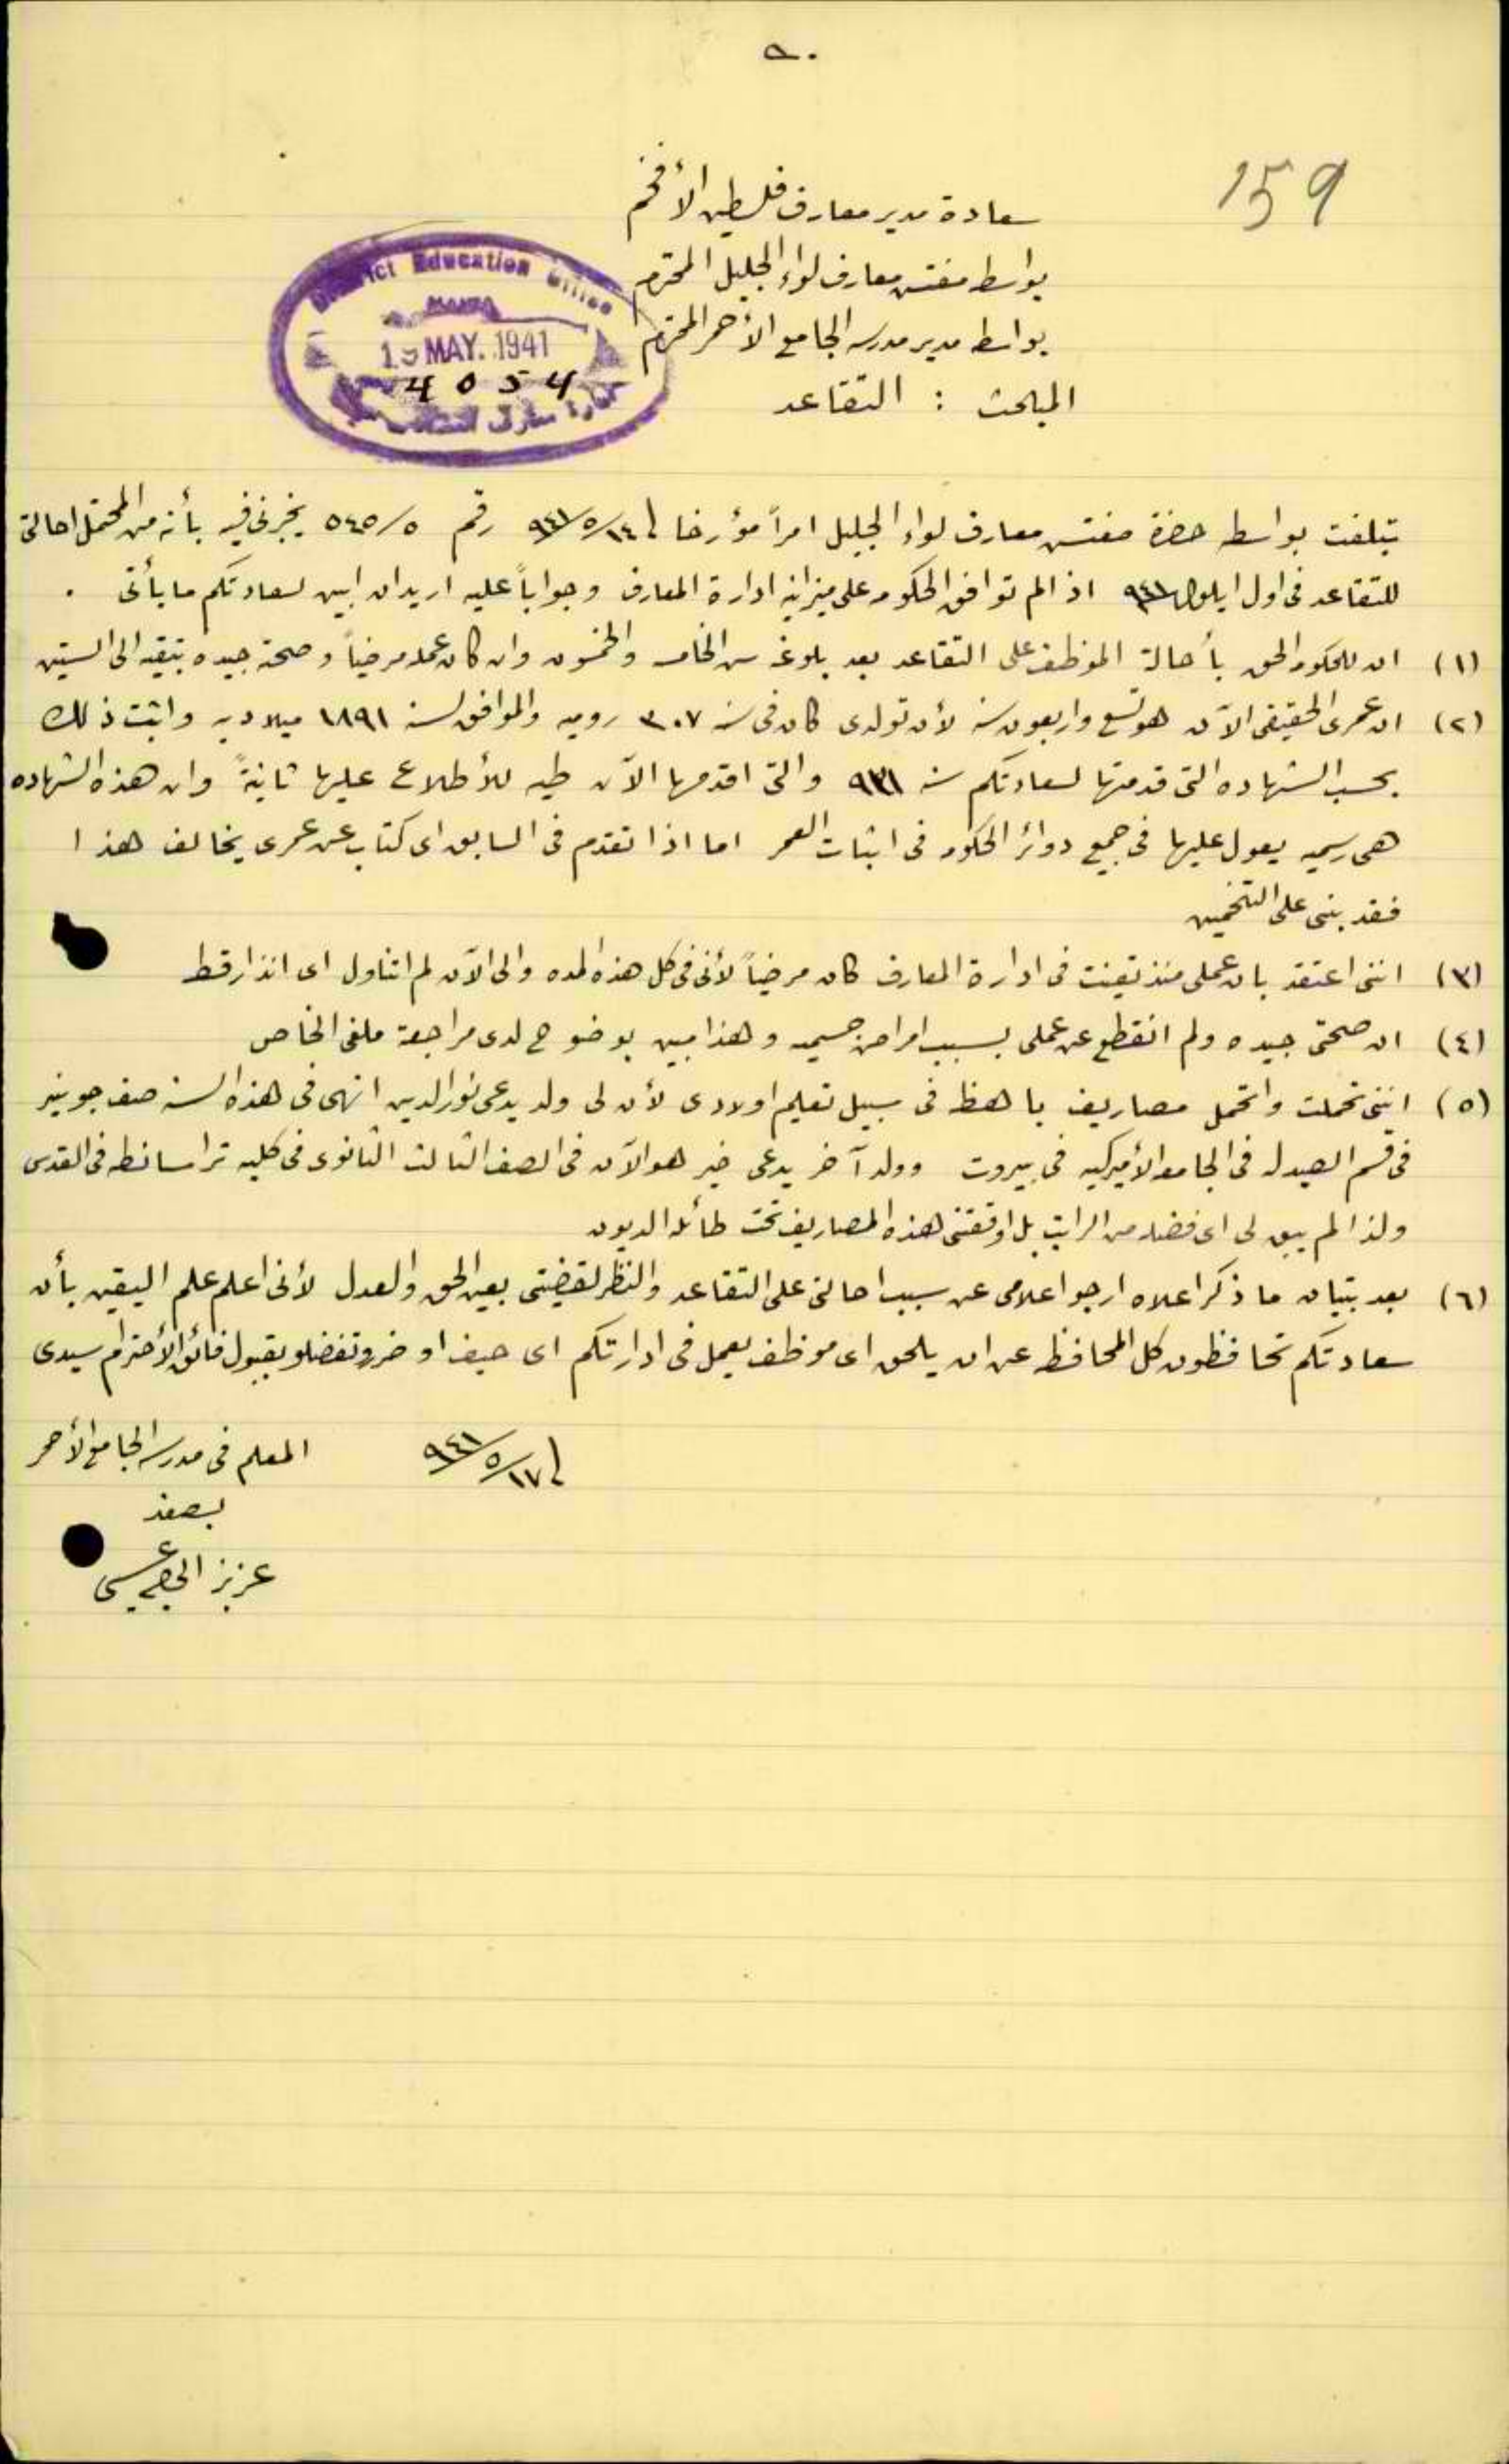 ٩٠
159
سعادة مدير معارف فلسطين الأفخم
بواسطة مفتش معارف لواء الجليل المحترم
بواسطة مدير مدرسة الجامع الأحمر المحترم
المبحث : التقاعد
District Education Office
19 MAY. 1941
4054
تبلغت بواسطة حضرة مفتش معارف لواء الجليل امراً مؤرخا في ١٤/٥/٩٤١ رقم ٥/٥٤٥ يخبرني فيه بأنه من المحتمل احالتي
للتقاعد في اول ايلول ٩٤١ اذا لم توافق الحكومه على ميزانية ادارة المعارف وجواباً عليه اريد ان ابين لسعادتكم ما يأتي .
(١) ان للحكومه الحق بأحالة الموظف على التقاعد بعد بلوغه سن الخامسه والخمسون وان كان عمله مرضياً وصحته جيده تبقيه الى الستين
(٢) ان عمري الحقيقي الآن هو تسع واربعون سنه لأن تولدي كان في سنة ٣٠٧ روميه والموافق لسنة ١٨٩١ ميلاديه واثبت ذلك
بحسب الشهاده التي قدمتها لسعادتكم سنه ٩٣١ والتي اقدمها الآن طيه للأطلاع عليها ثانيةً وان هذه الشهاده
هي رسميه يعول عليها في جميع دوائر الحكومه في اثبات العمر اما اذا تقدم في السابق اى كتاب عن عمري يخالف هذا
فقد بني على التخمين
(٣) انني اعتقد بان عملي منذ تعينت في ادارة المعارف كان مرضياً لأني في كل هذه المده والى الآن لم اتناول اى انذار قط
(٤) ان صحتي جيده ولم انقطع عن عملي بسبب امراض جسيمه وهذا مبين بوضوح لدى مراجعة ملفي الخاص
(٥) انني تحملت واتحمل مصاريف باهظه في سبيل تعليم اولادي لأن لي ولد يدعى نور الدين انهى في هذه السنه صف جونير
في قسم الصيدله في الجامعه الأميركيه في بيروت وولد آخر يدعى خير هو الآن في الصف الثالث الثانوي في كليه تراسانطه في القدس
ولذا لم يبق لي اى فضله من الراتب بل اوقعتني هذه المصاريف تحت طائلة الديون
(٦) بعد بتيان ما ذكر اعلاه ارجو اعلامي عن سبب احالتي على التقاعد والنظر لقضيتي بعين الحق والعدل لأني اعلم علم اليقين بأن
سعادتكم تحافظون كل المحافظه عن ان يلحق اى موظف يعمل في ادارتكم اى حيف او ضرر وتفضلو بقبول فائق الأحترام سيدي
في ١٧/٥/٩٤١
المعلم في مدرسة الجامع الأحمر
بصفد
عزيز